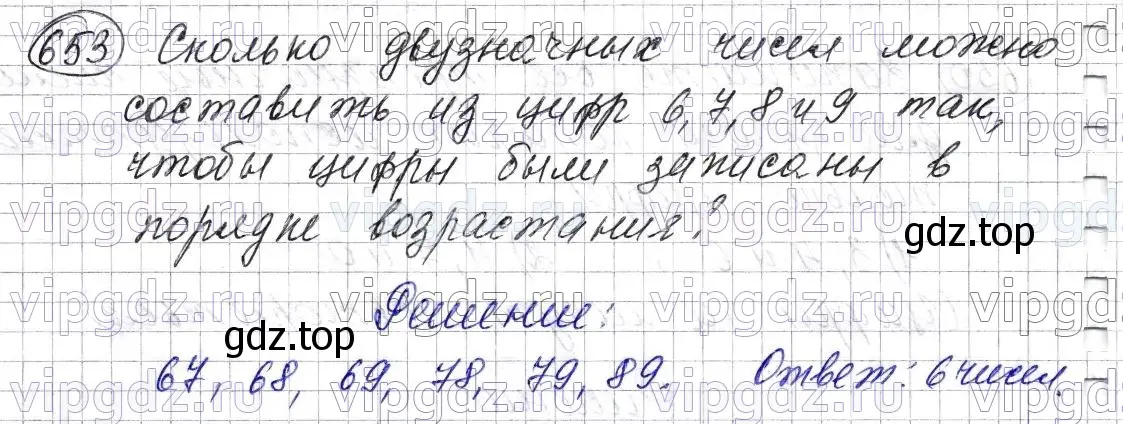 653 Сколько двузначных чисел можно
составить из цифр 6, 7, 8 и 9 так,
чтобы цифры были записаны в
порядке возрастания?
gdz.top
Решение:
gdz.top
67, 68, 69, 78, 79, 89. Ответ: 6 чисел.
vipgdz.ru